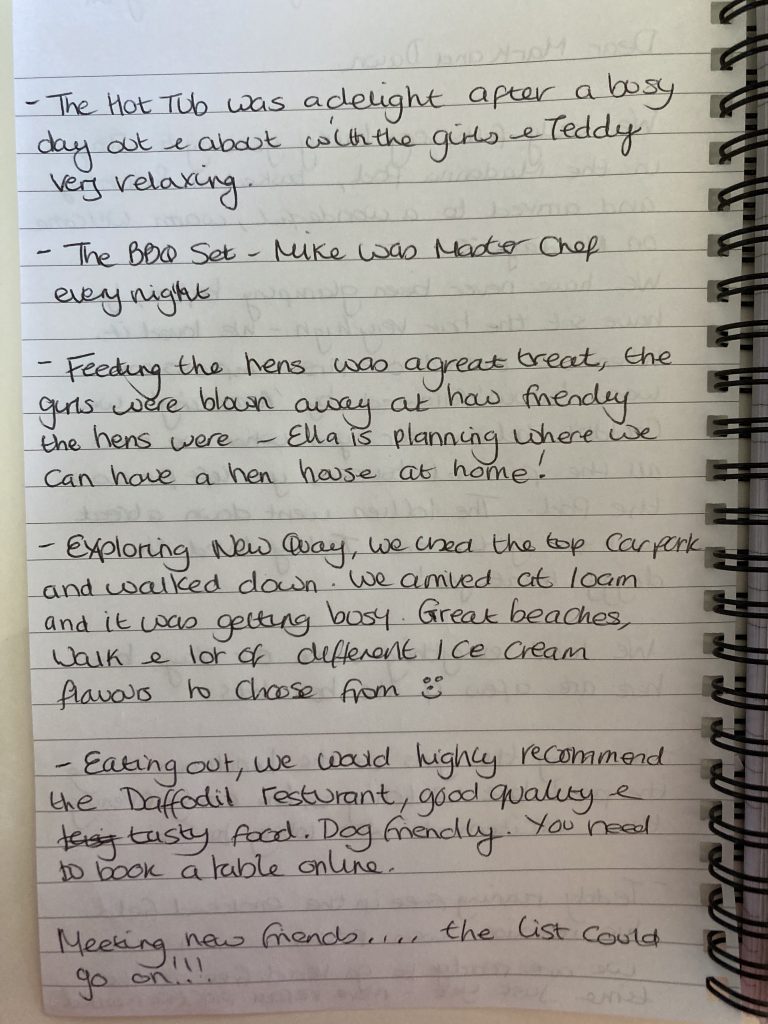 - The Hot Tub was a delight after a busy
day out & about with the girls & Teddy
very relaxing.
- The BBQ Set - Mike was Master Chef
every night
- Feeding the hens was a great treat, the
girls were blown away at how friendly
the hens were - Ella is planning where we
can have a hen house at home!
- Exploring New Quay, we used the top car park
and walked down. We arrived at 10am
and it was getting busy. Great beaches,
walk & lot of different Ice Cream
flavours to choose from ☺
- Eating out, we would highly recommend
the Daffodil resturant, good quality &
tasty food. Dog friendly. You need
to book a table online.
Meeting new friends.... the list could
go on!!!